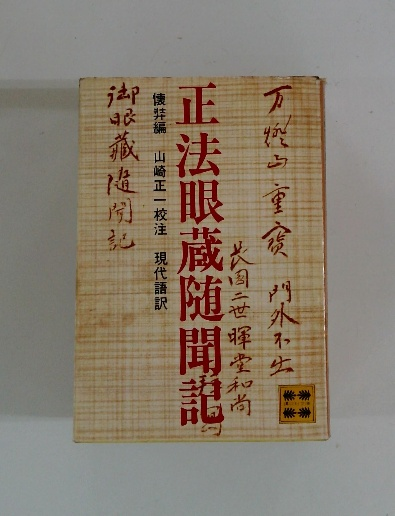 万灯山重寳 門外不出
長国二世暉堂和尚
正法眼蔵随聞記
懐弉編 山崎正一校注 現代語訳
御眼蔵随聞記